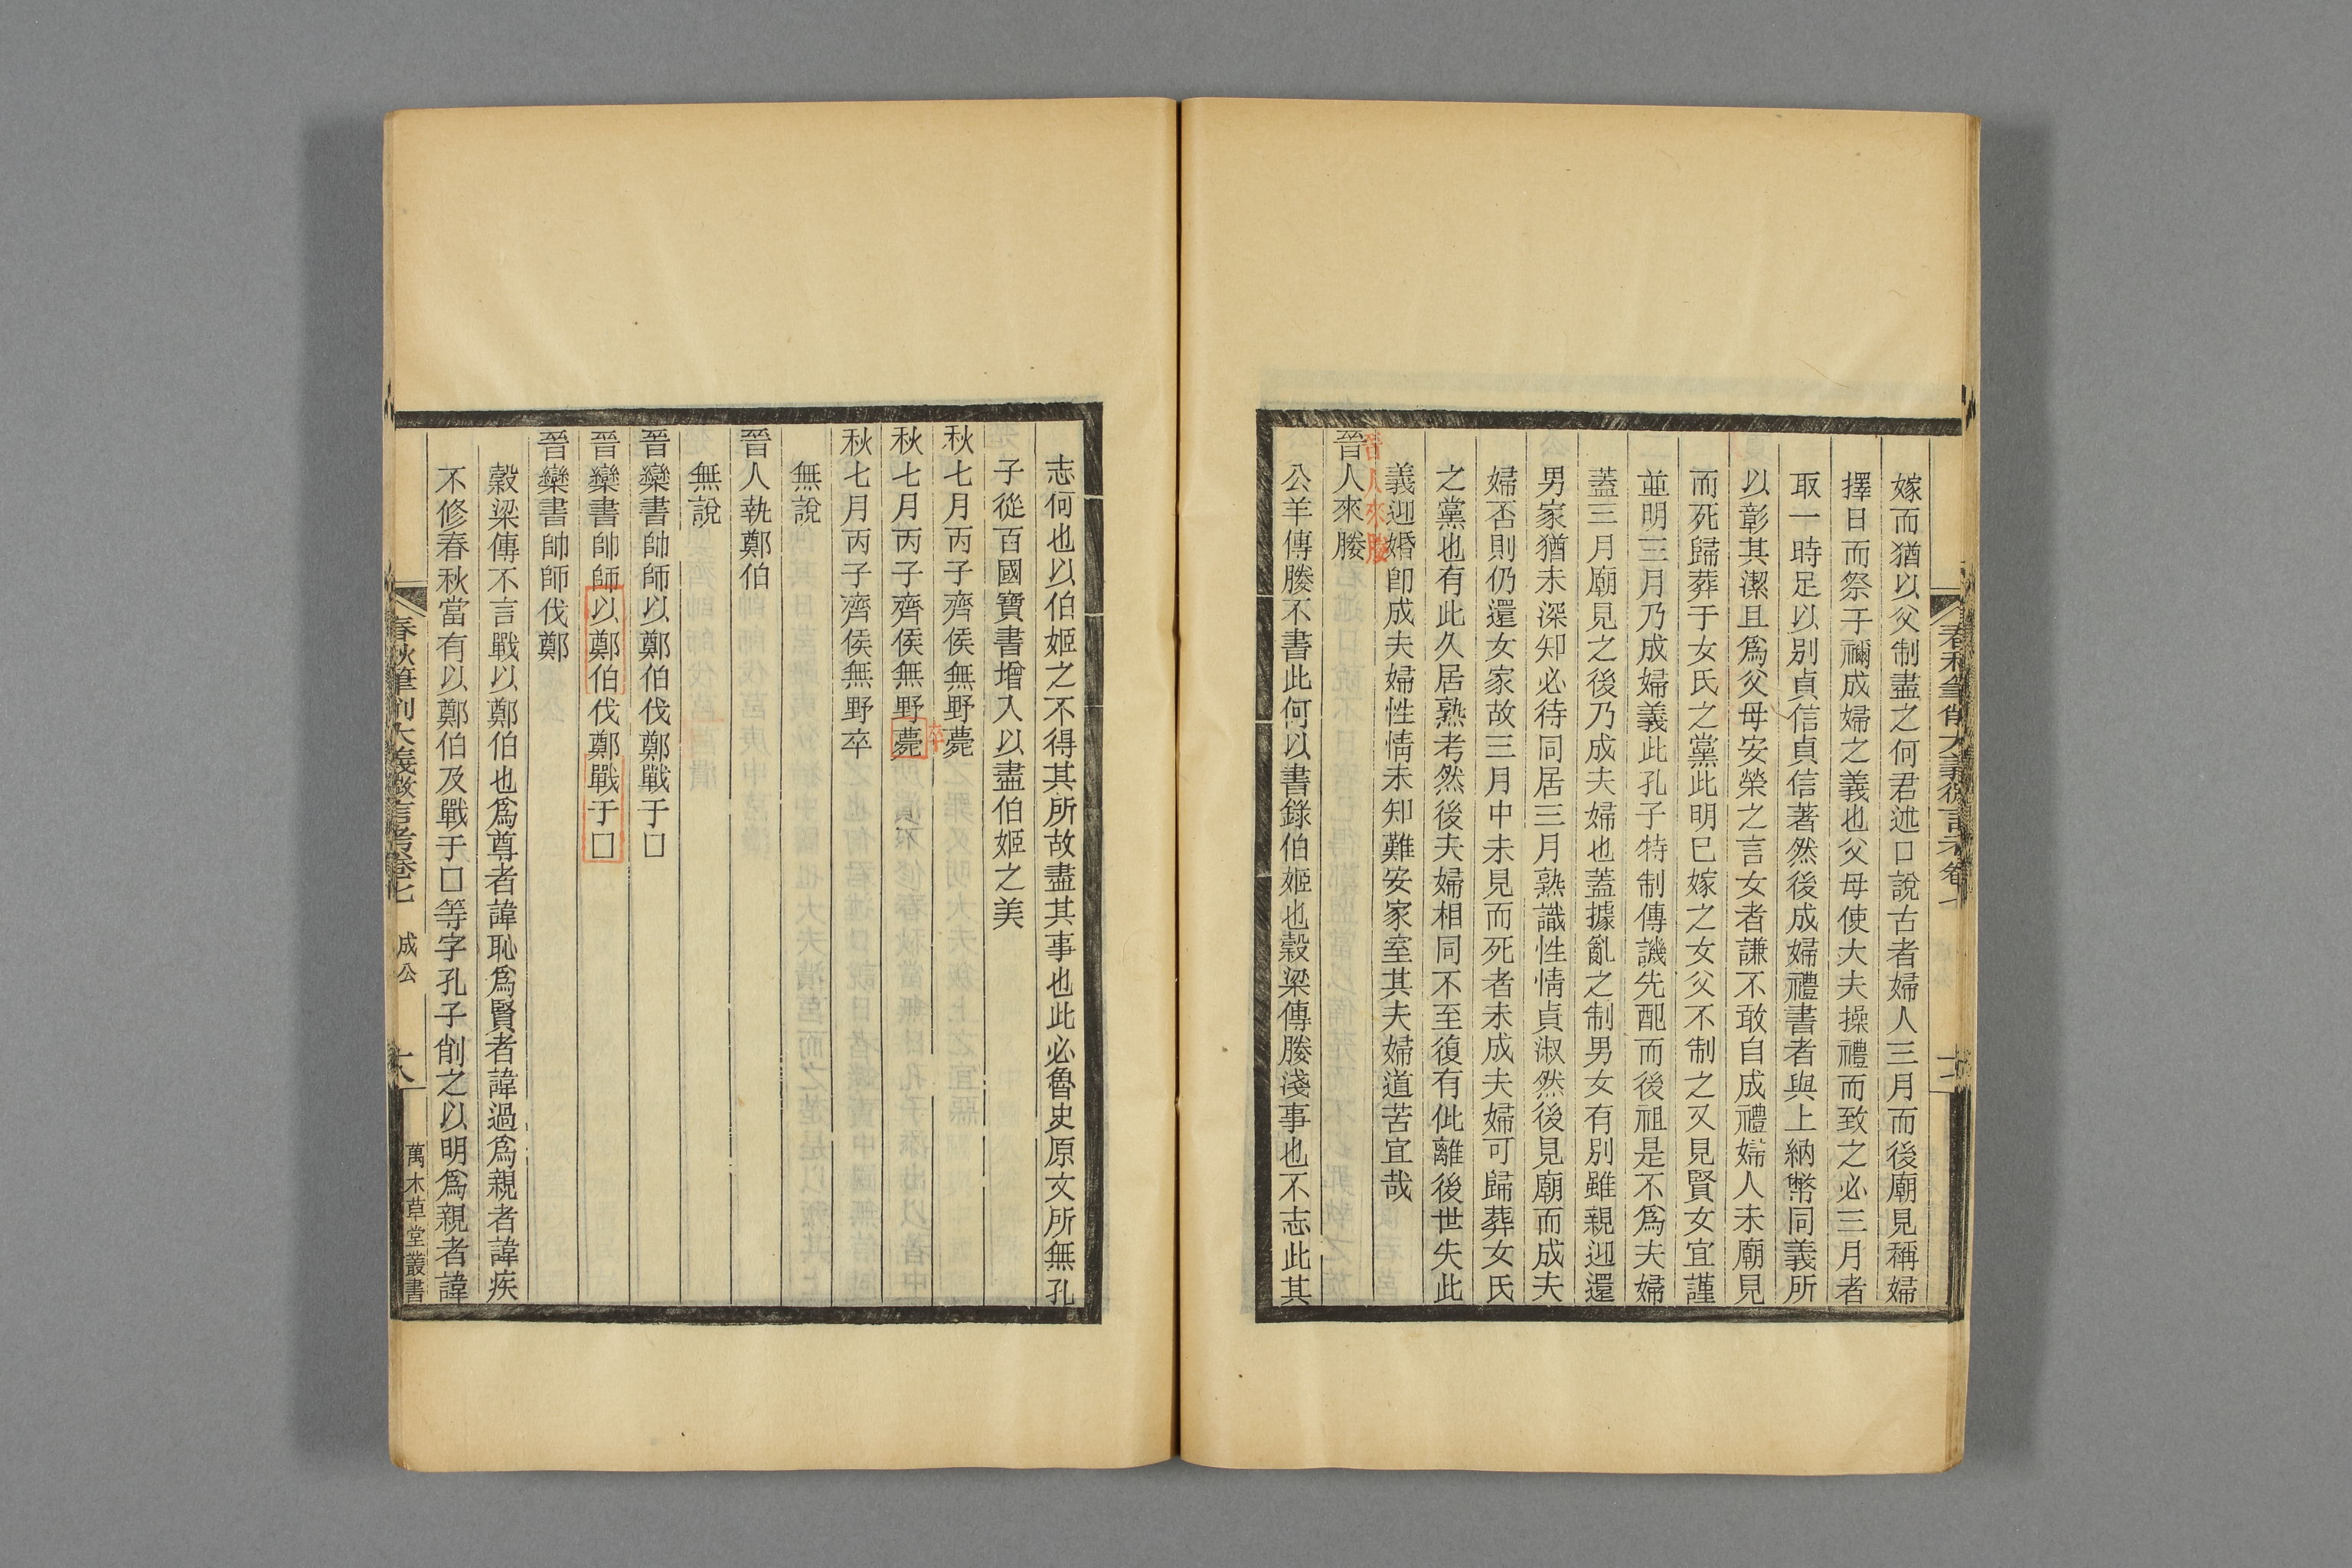 嫁而猶以父制盡之何君述口說古者婦人三月而後廟見稱婦
擇日而祭子禰成婦之義也父母使大夫操禮而致之必三月者
取一時足以別貞信貞信著然後成婦禮書者與上納幣同義所
以彰其潔且爲父母安榮之言女者謙不敢自成禮婦人未廟見
而死歸葬于女氏之黨此明已嫁之女父不制之又見賢女宜謹
並明三月乃成婦義此孔子特制傳譏先配而後祖是不爲夫婦
蓋三月廟見之後乃成夫婦也蓋據亂之制男女有別雖親迎還
男家猶未深知必待同居三月熟識性情貞淑然後見廟而成夫
婦否則仍還女家故三月中未見而死者未成夫婦可歸葬女氏
之黨也有此久居熟考然後夫婦相同不至復有仳離後世失此
義迎婚卽成夫婦性情未知難安家室其夫婦道苦宜哉
晉人來媵
晉人來媵
公羊傳媵不書此何以書錄伯姬也穀梁傳媵淺事也不志此其
志何也以伯姬之不得其所故盡其事也此必魯史原文所無孔
子從百國寶書增入以盡伯姬之美
秋七月丙子齊侯無野薨
卒
秋七月丙子齊侯無野薨
秋七月丙子齊侯無野卒
無說
晉人執鄭伯
無說
晉欒書帥師以鄭伯伐鄭戰于囗
晉欒書帥師以鄭伯伐鄭戰于囗
晉欒書帥師伐鄭
穀梁傳不言戰以鄭伯也爲尊者諱恥爲賢者諱過爲親者諱疾
不修春秋當有以鄭伯及戰于囗等字孔子削之以明爲親者諱
春秋筆削大義微言考卷七 成公 十八 萬木草堂叢書